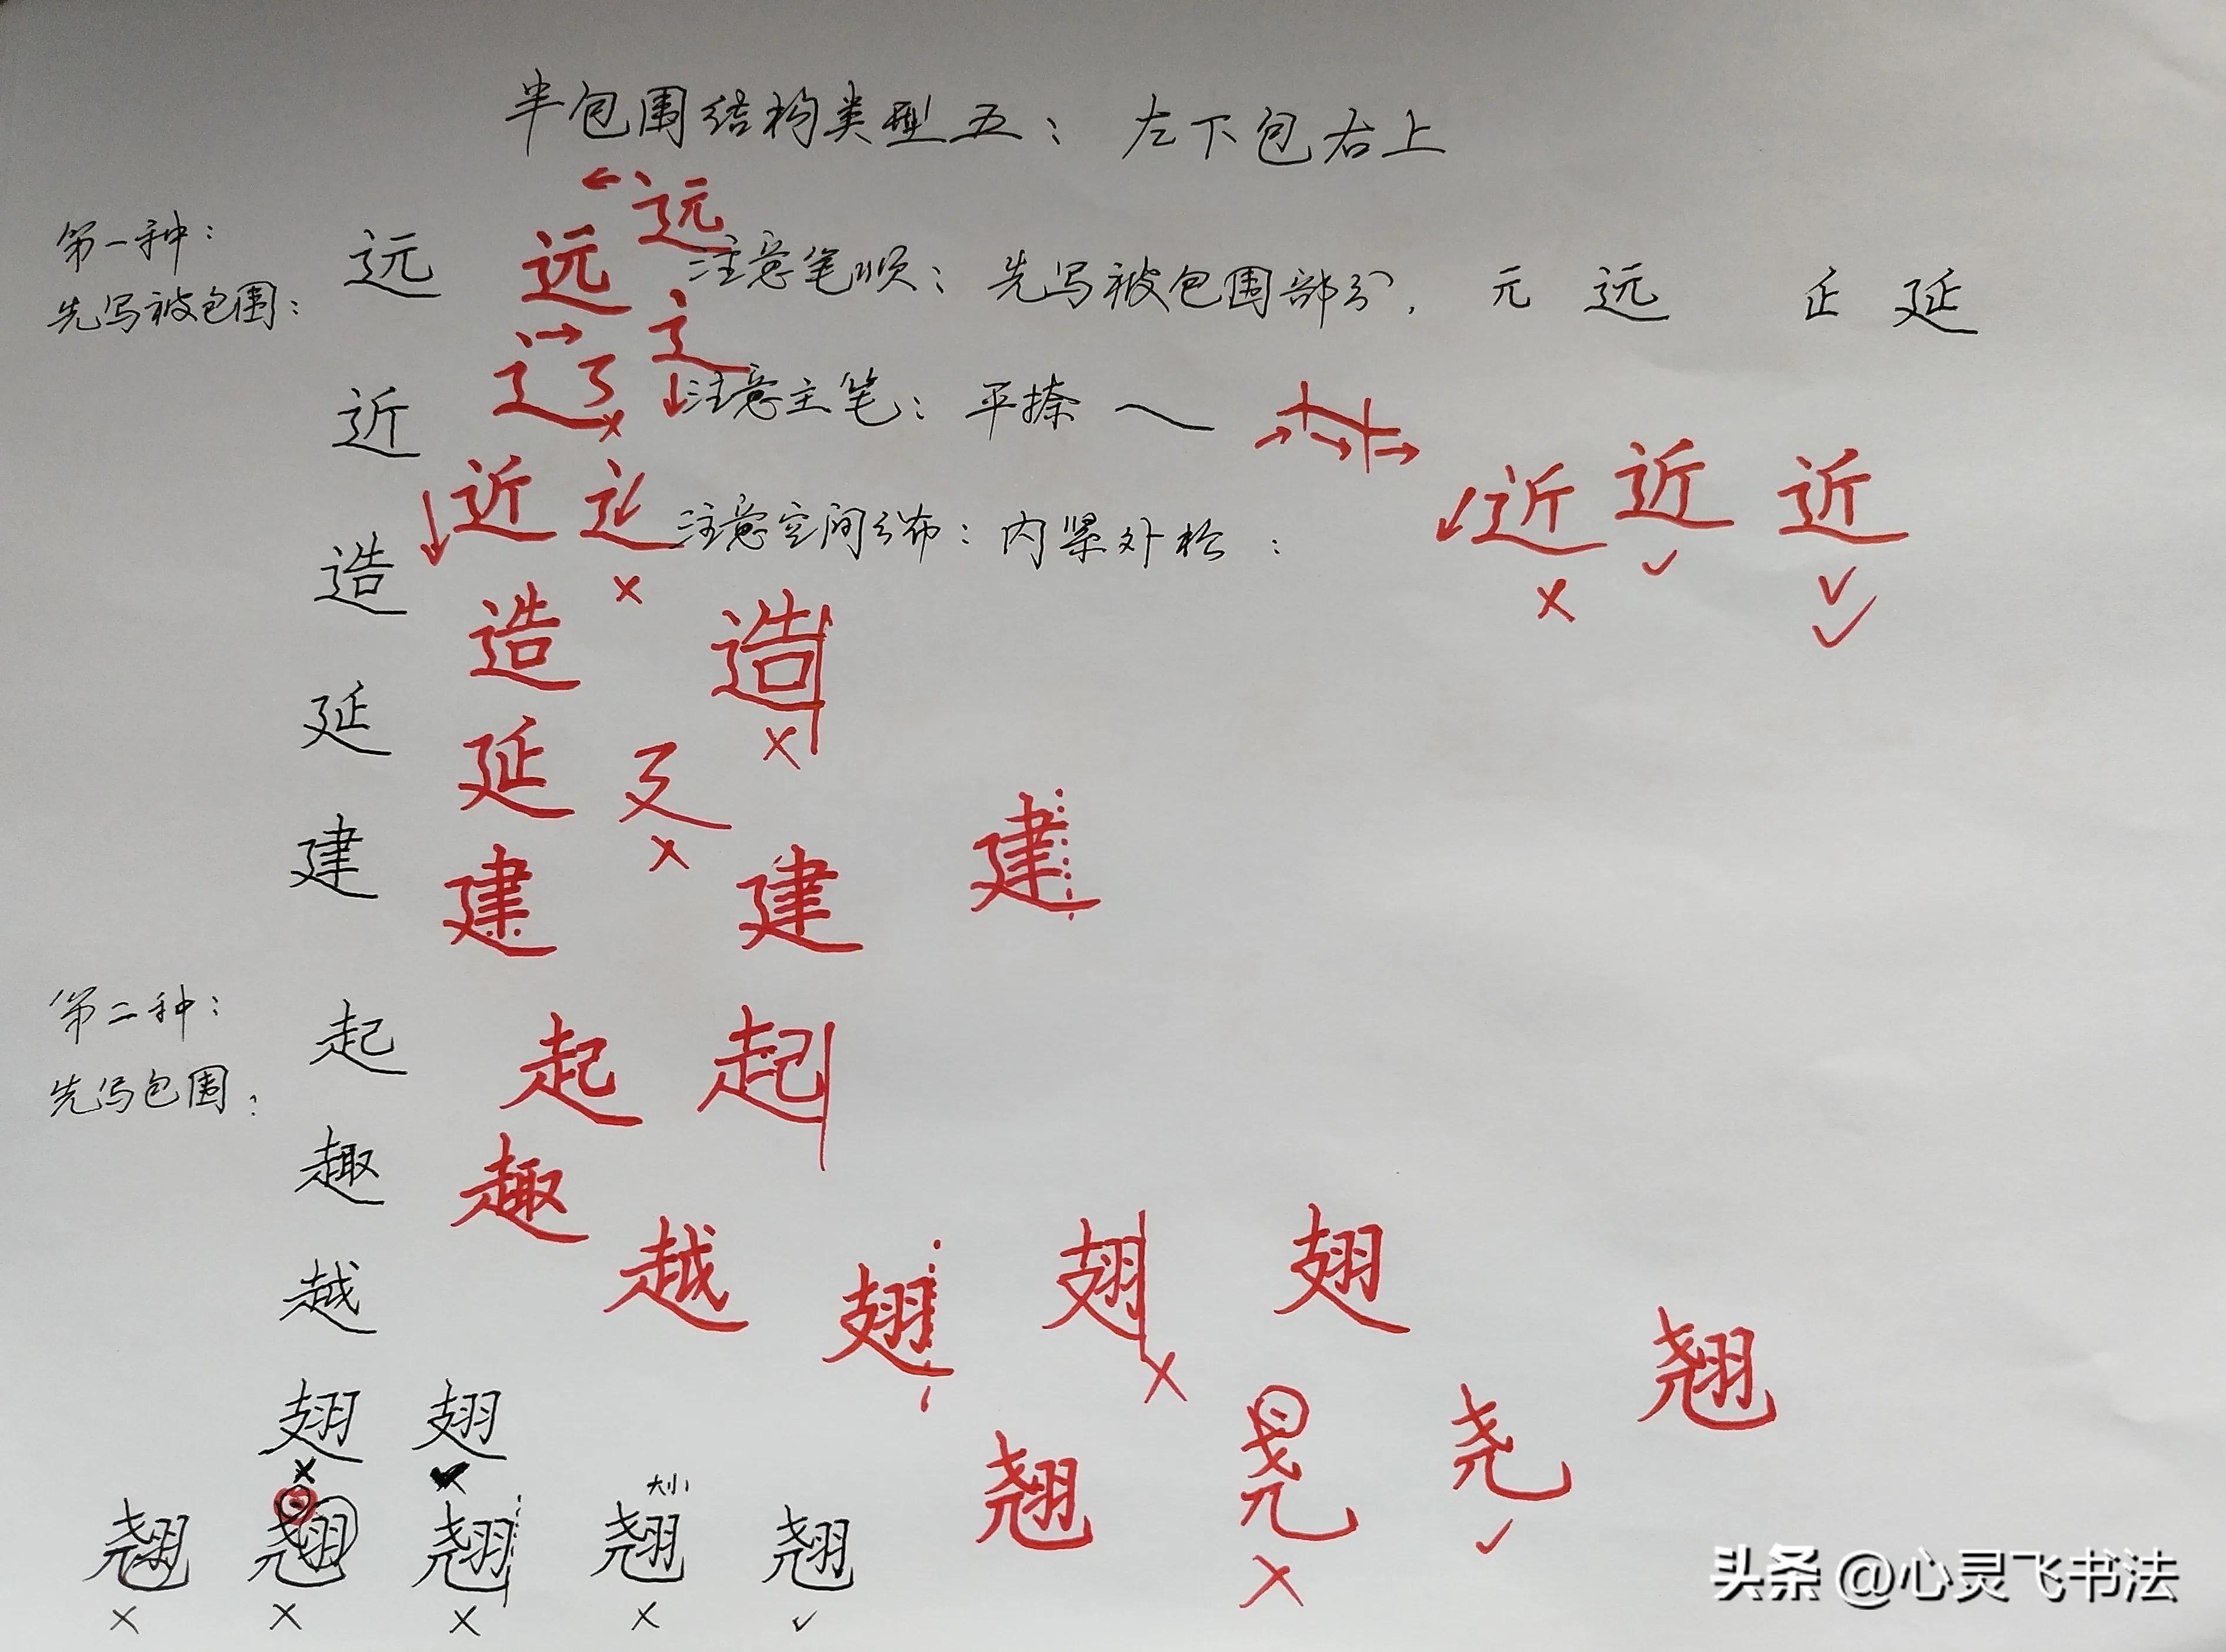 半包围结构类型五：左下包右上
远
第一种：
远 远 注意笔顺：先写被包围部分，元 远 正 延
先写被包围：
辶
近 注意主笔：平捺
近 注意空间分布：内紧外松： 近 近 近
造
造 造
延
延 廴
建
建 建 建
第二种：
起 起 起
先写包围：
趣 趣
越 越 翅 翅 翅
翘
翅 翅 尧
翘
大小
翘 翘 翘 翘 翘
头条 @心灵飞书法